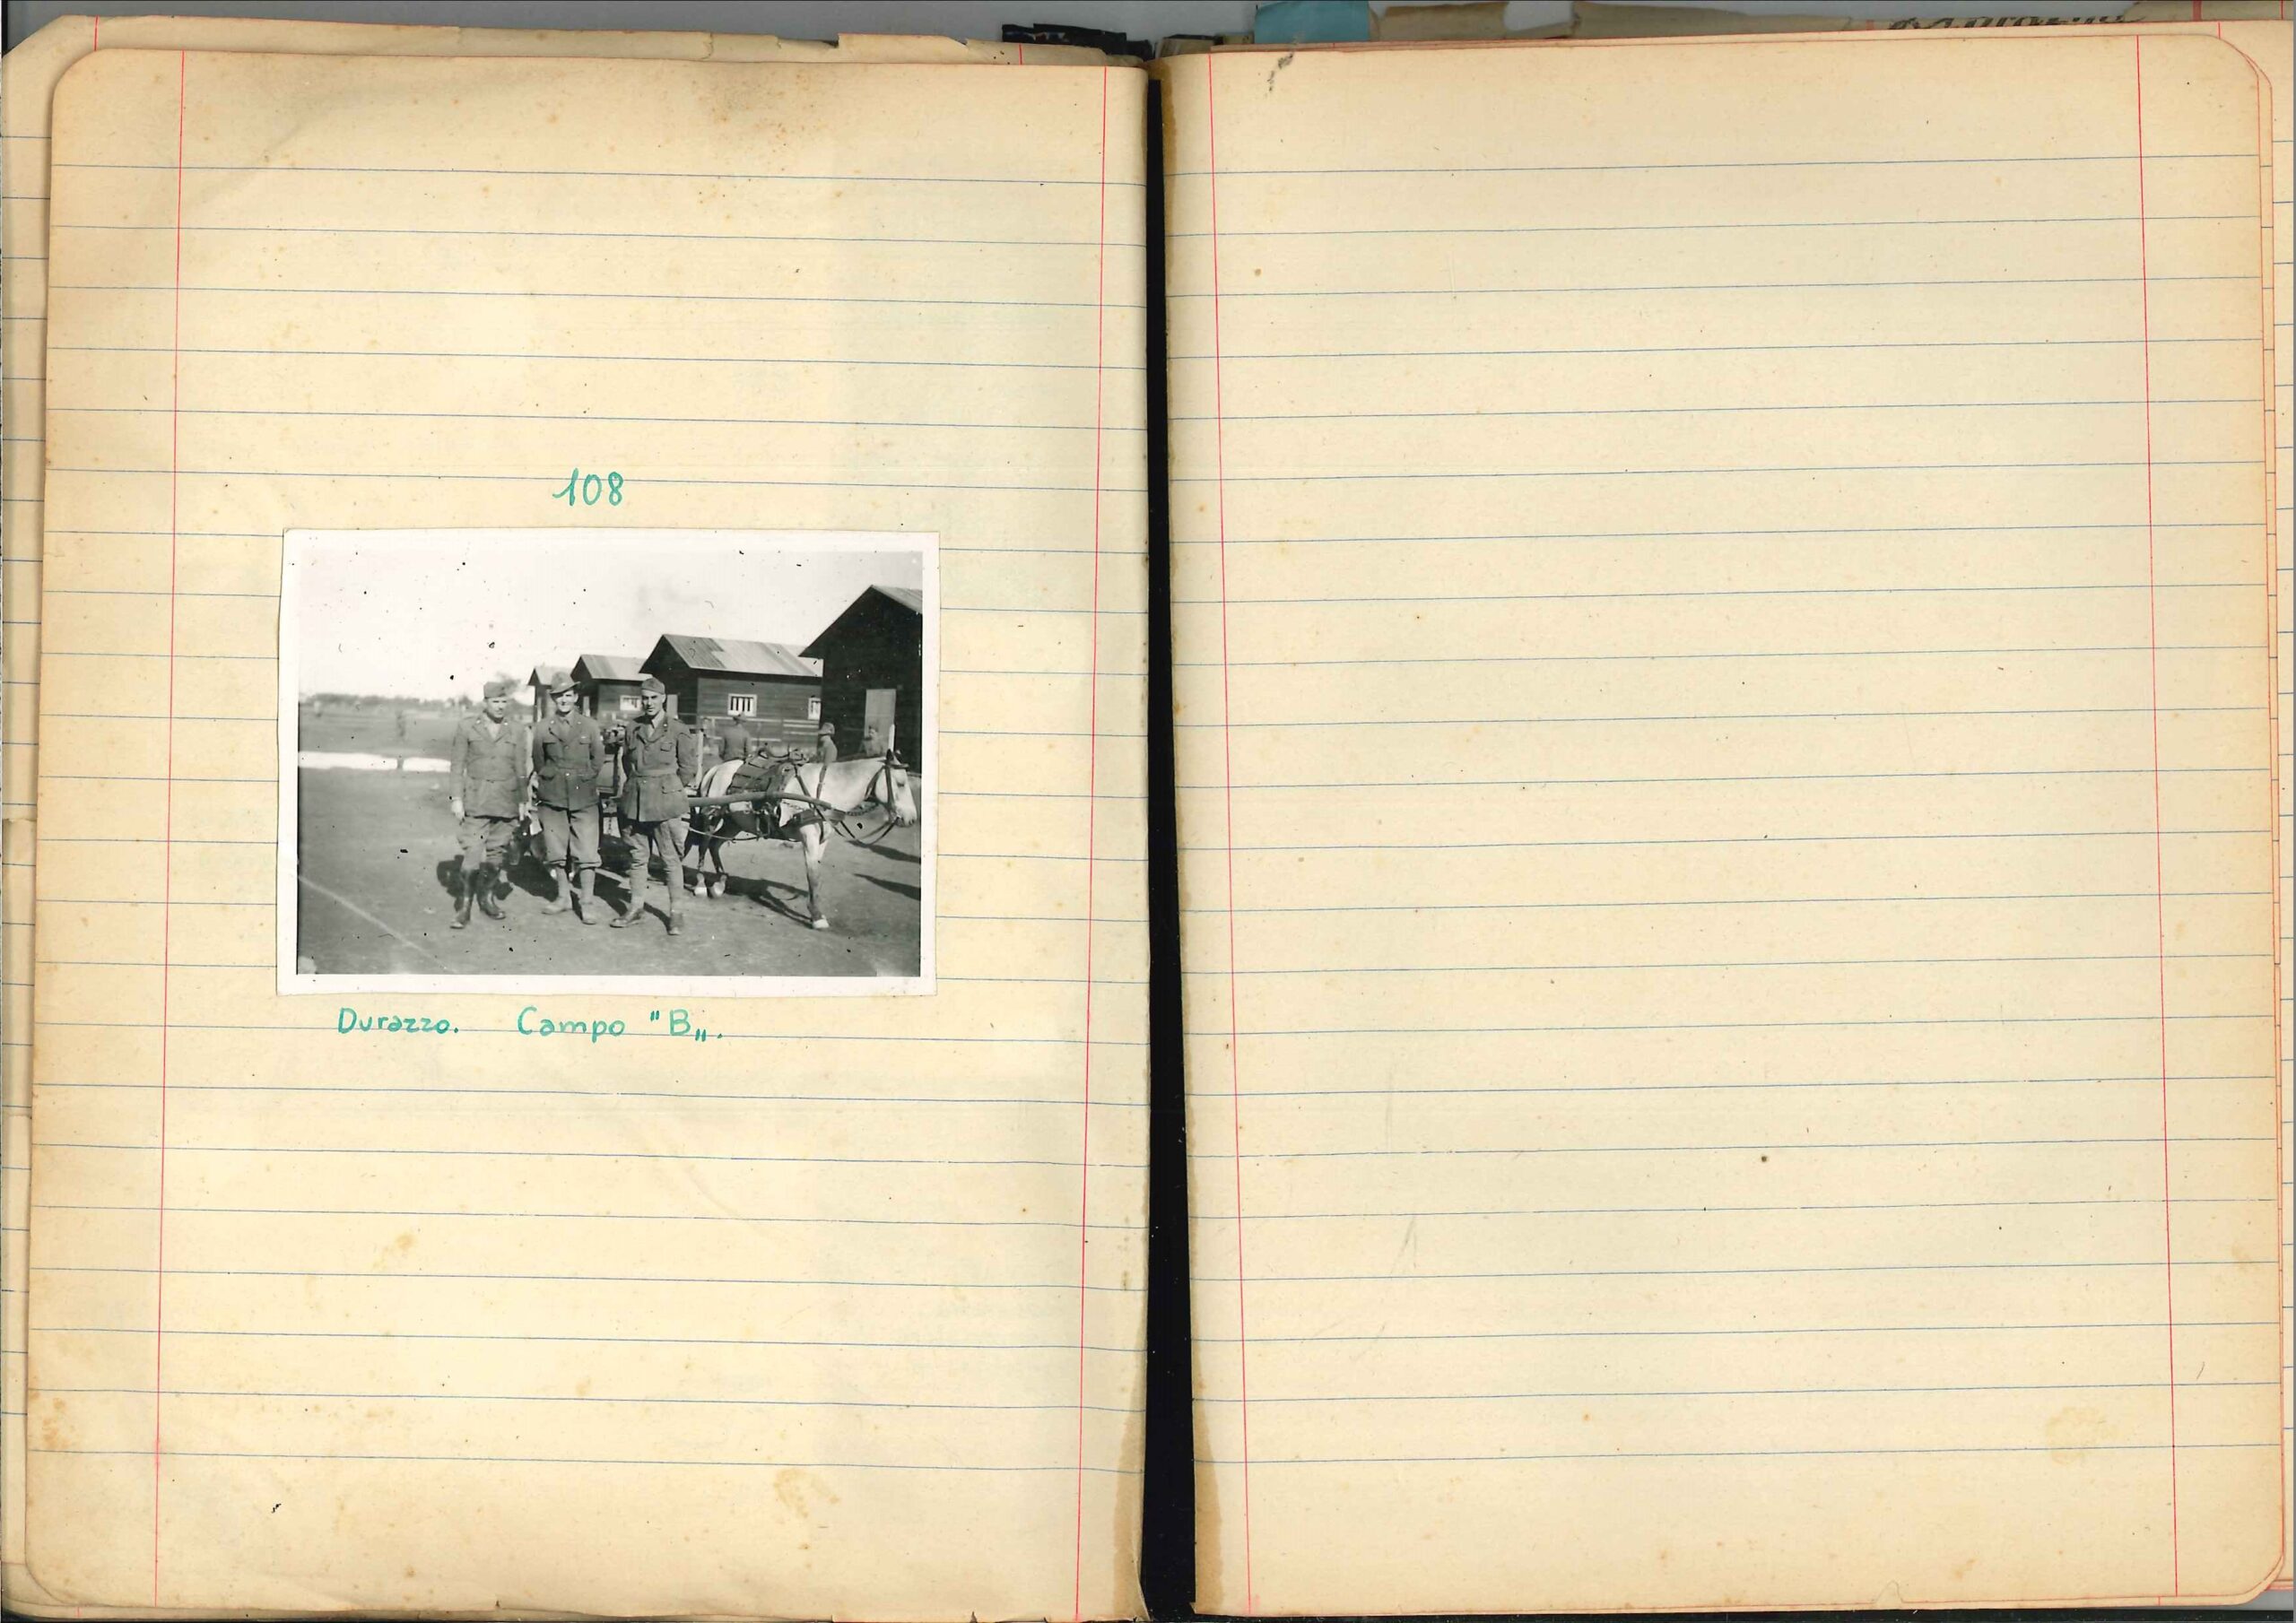 108
Durazzo. Campo "B„.